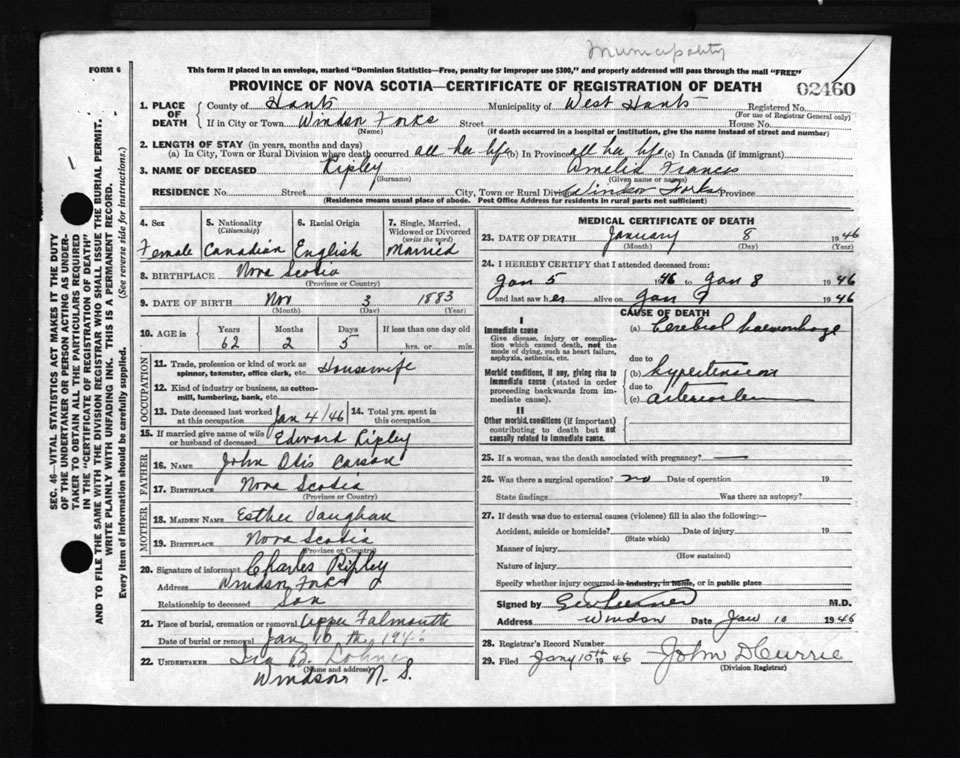 Municipality
FORM 6
This form if placed in an envelope, marked "Dominion Statistics—Free, penalty for improper use $300," and properly addressed will pass through the mail "FREE"
PROVINCE OF NOVA SCOTIA—CERTIFICATE OF REGISTRATION OF DEATH 02460
1. PLACE OF DEATH County of Hants Municipality of West Hants Registered No.
(For use of Registrar General only)
If in City or Town Windsor Forks Street House No.
(Name) (If death occurred in a hospital or institution, give the name instead of street and number)
2. LENGTH OF STAY (in years, months and days)
(a) In City, Town or Rural Division where death occurred all her life (b) In Province all her life (c) In Canada (if immigrant)
3. NAME OF DECEASED Ripley Amelia Frances
(Surname) (Given name or names)
RESIDENCE No. Street City, Town or Rural Division Windsor Forks Province
(Residence means usual place of abode. Post Office Address for residents in rural parts not sufficient)
SEC. 46—VITAL STATISTICS ACT MAKES IT THE DUTY
OF THE UNDERTAKER OR PERSON ACTING AS UNDER-
TAKER TO OBTAIN ALL THE PARTICULARS REQUIRED
IN THE "CERTIFICATE OF REGISTRATION OF DEATH"
AND TO FILE THE SAME WITH THE DIVISION REGISTRAR WHO SHALL ISSUE THE BURIAL PERMIT.
WRITE PLAINLY WITH UNFADING INK. THIS IS A PERMANENT RECORD.
Every item of information should be carefully supplied. (See reverse side for instructions.)
4. Sex 5. Nationality (Citizenship) 6. Racial Origin 7. Single, Married, Widowed or Divorced (write the word)
Female Canadian English Married
8. BIRTHPLACE Nova Scotia
(Province or Country)
9. DATE OF BIRTH Nov 3 1883
(Month) (Day) (Year)
10. AGE in Years Months Days If less than one day old
62 2 5 hrs. or min.
OCCUPATION
11. Trade, profession or kind of work as spinner, teamster, office clerk, etc. Housewife
12. Kind of industry or business, as cotton-mill, lumbering, bank, etc.
13. Date deceased last worked at this occupation Jan 4/46 14. Total yrs. spent in this occupation
15. If married give name of wife or husband of deceased Edward Ripley
FATHER
16. NAME John Otis Carson
17. BIRTHPLACE Nova Scotia
(Province or Country)
MOTHER
18. MAIDEN NAME Esther Vaughan
19. BIRTHPLACE Nova Scotia
(Province or Country)
20. Signature of informant Charles Ripley
Address Windsor Forks
Relationship to deceased Son
21. Place of burial, cremation or removal Upper Falmouth
Date of burial or removal Jan 10 th, 1946
22. UNDERTAKER Ira B.
(Name and address)
Windsor N. S.
MEDICAL CERTIFICATE OF DEATH
23. DATE OF DEATH January 8 1946
(Month) (Day) (Year)
24. I HEREBY CERTIFY that I attended deceased from:
Jan 5 1946 to Jan 8 1946
and last saw her alive on Jan 9 1946
CAUSE OF DEATH
I
Immediate cause (a) Cerebral haemorrhage
Give disease, injury or complication which caused death, not the mode of dying, such as heart failure, asphyxia, asthenia, etc.
due to
Morbid conditions, if any, giving rise to immediate cause (stated in order proceeding backwards from immediate cause). (b) hypertension
due to
(c)
II
Other morbid conditions (if important) contributing to death but not causally related to immediate cause.
25. If a woman, was the death associated with pregnancy? —
26. Was there a surgical operation? no Date of operation 19
State findings Was there an autopsy?
27. If death was due to external causes (violence) fill in also the following:—
Accident, suicide or homicide? Date of injury 19
(State which)
Manner of injury
(How sustained)
Nature of injury
Specify whether injury occurred in industry, in home, or in public place
Signed by M.D.
Address Windsor Date Jan 10 1946
28. Registrar's Record Number
29. Filed Jany 10th 1946 John D Currie
(Division Registrar)